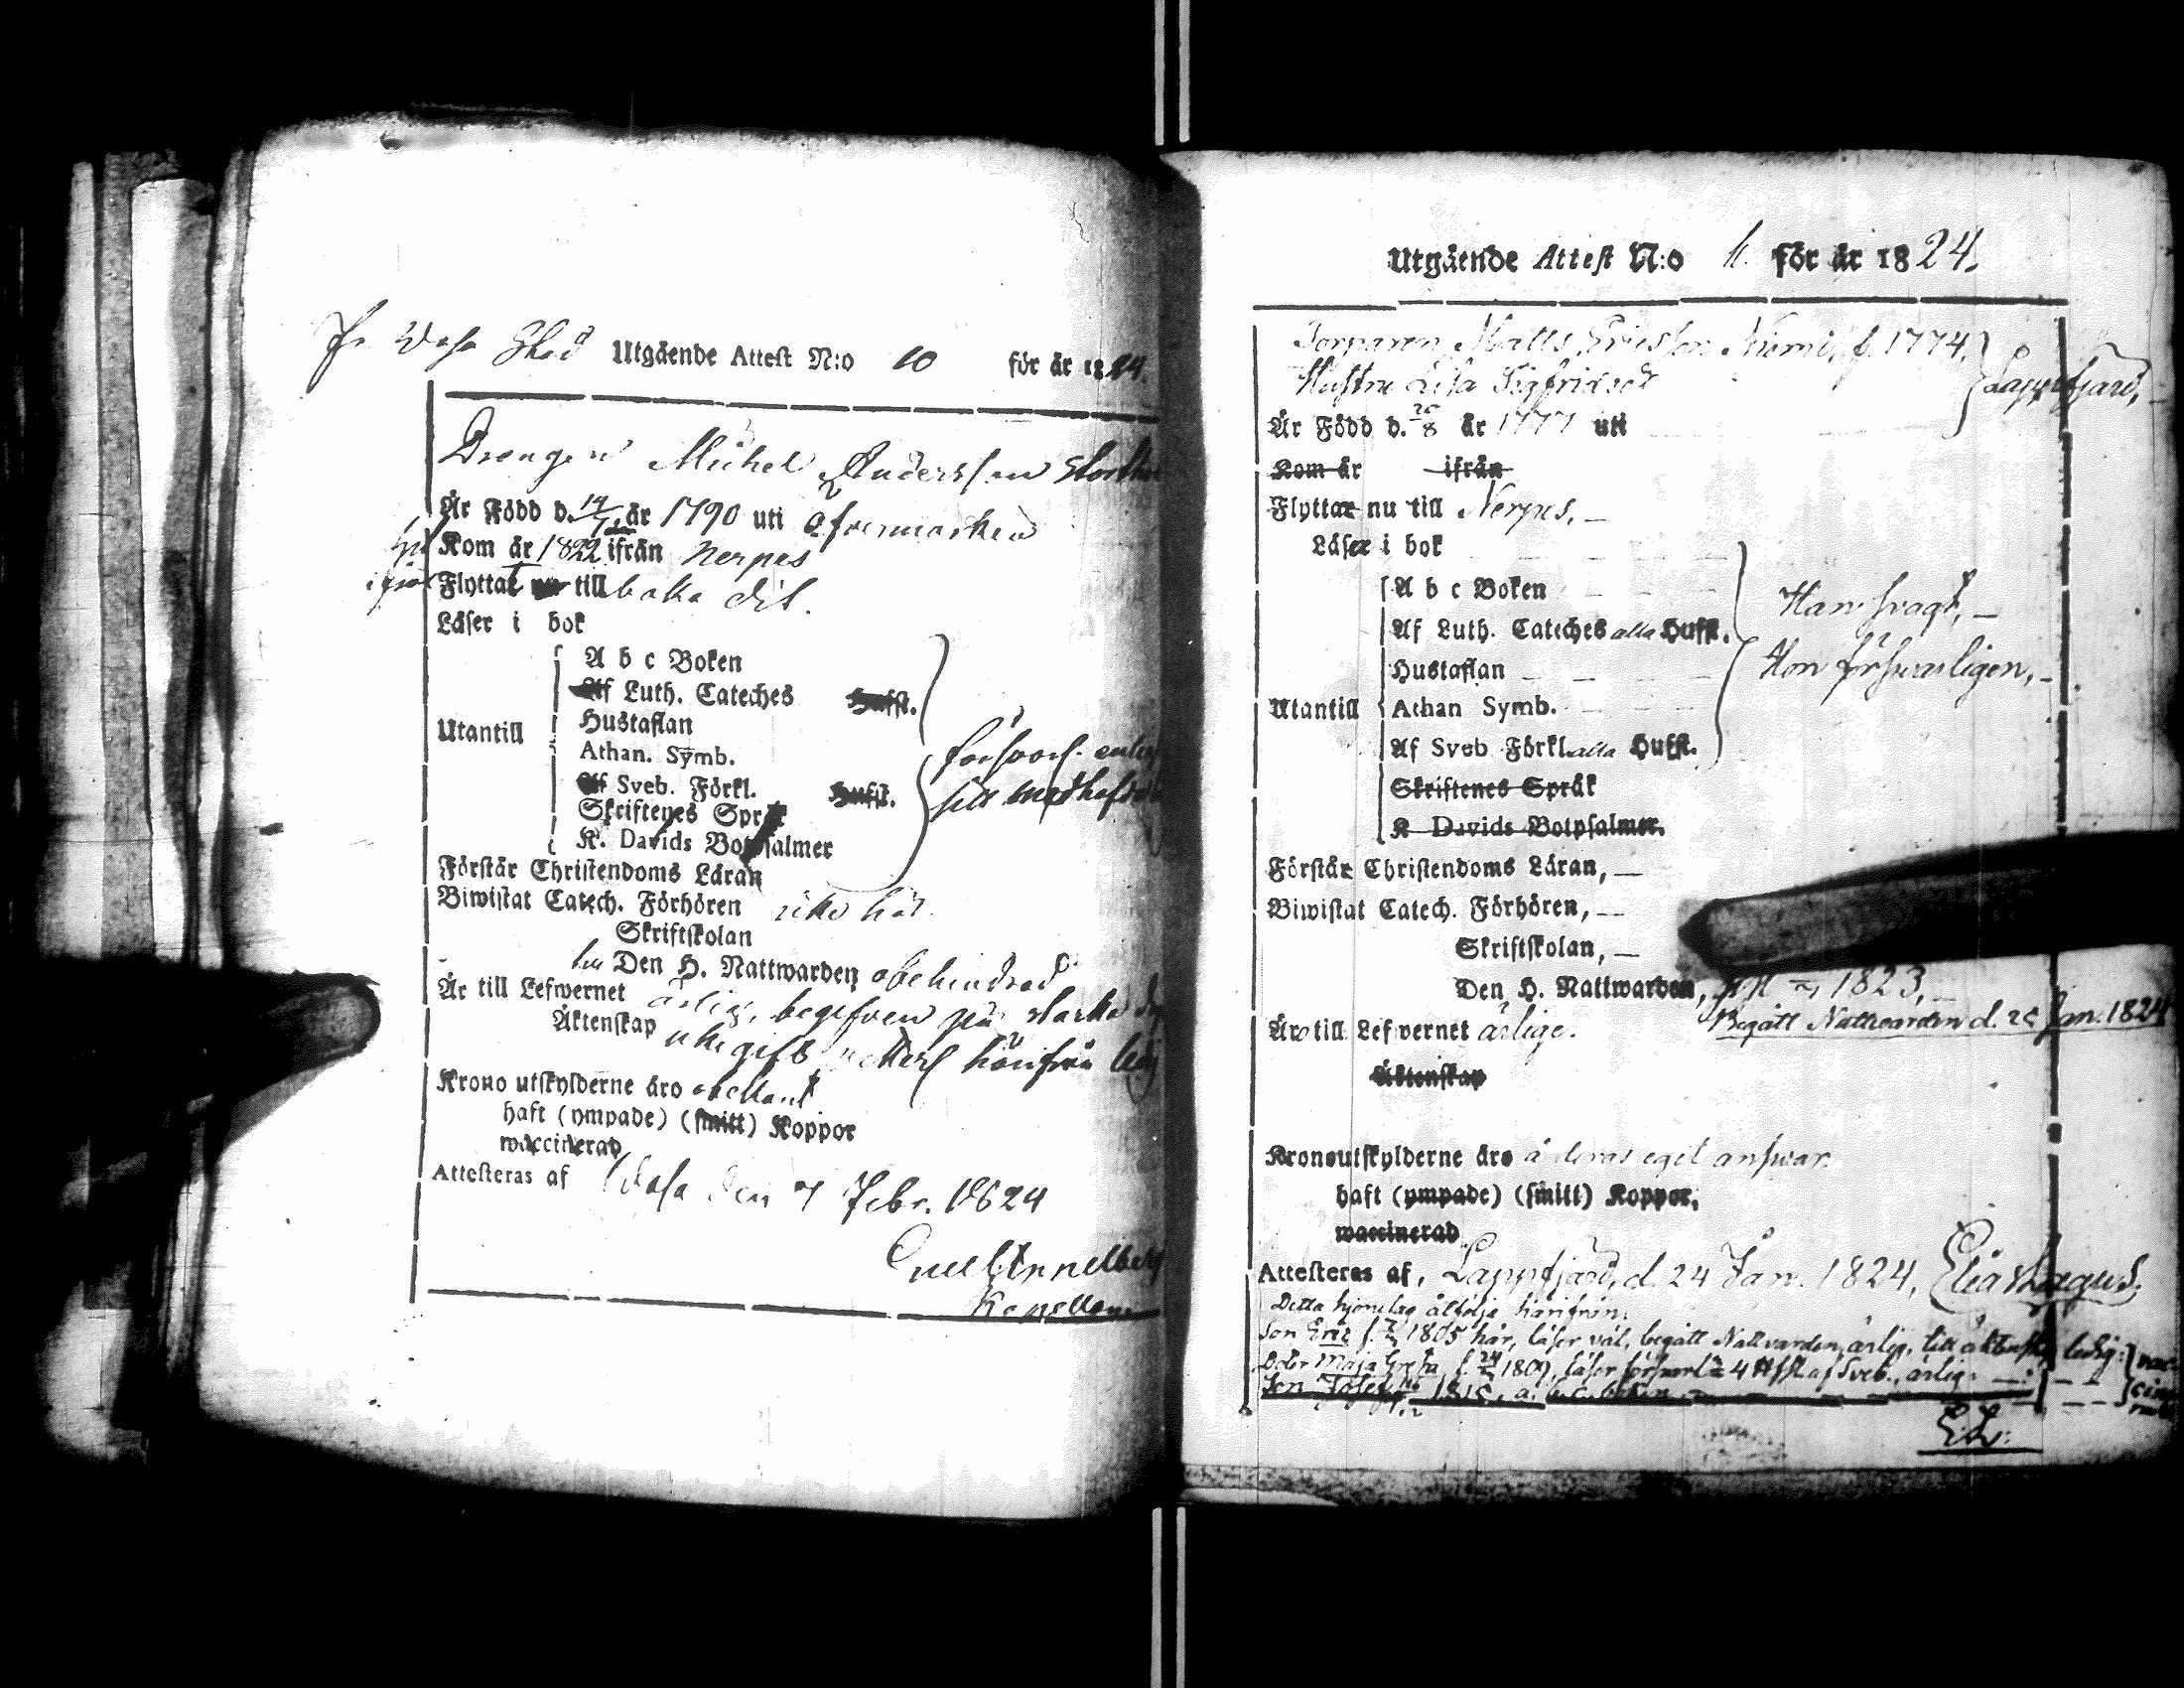 Fr. Wasa Stad Utgående Attest N:o 10 för år 1824.
Drengen Michel Andersson
Är Född d. 14/1 år 1790 uti Öfvermarken
Kom år 1822 ifrån Nerpes
Flyttat till baka dit.
Läser i bok
Utantill
A b c Boken
Af Luth. Cateches Hufst.
Hustaflan
Athan. Symb.
Af Sveb. Förkl. Hufst.
Skriftenes Språk
K. Davids Botpsalmer
försvarl.
sitt
Förstår Christendoms Läran
Biwistat Catech. Förhören icke här
Skriftskolan
Den H. Nattwarden obehindrad
Är till Lefwernet ärlig, begifven på starka
Äktenskap icke gift härifrån
Krono utskylderne äro obekant
haft (ympade) (smitt) Koppor
waccinerad
Attesteras af Wasa den 7 Febr. 1824
Utgående Attest N:o för år 1824.
Torparen Matts Ericsson Niemi, f. 1774,
Hustru Lisa Sigfridsdr
Lappfjärd,
Är Född d. 26/8 år 1777 uti
Kom år ifrån
Flyttar nu till Nerpes,
Läser i bok
Utantill
A b c Boken
Af Luth. Cateches alla Hufst.
Hustaflan
Athan Symb.
Af Sveb Förkl. alla Hufst.
Skriftenes Språk
K Davids Botpsalmer.
Han svagt,
Hon försvarligen,
Förstår Christendoms Läran,
Biwistat Catech. Förhören,
Skriftskolan,
Den H. Nattwarden, 1823,
Begått Nattvarden d. 25 Jan. 1824
Äro till Lefvernet ärlige.
Äktenskap
Kronoutskylderne äro å deras eget answar.
haft (ympade) (smitt) Koppor,
waccinerad
Attesteras af, Lappfjärd, d. 24 Jan. 1824, Elias Lagus.
Detta hjonelag åtfölja härifrån,
Son Eric f. 1805 här, läser väl, begått Nattvarden, ärlig, till äktensk. ledig:
Doter Maja Greta, f. 1809, läser försvarl. 4 Hfst. af Sveb., ärlig
Son Josef 1815, a. b. c. boken
E. L.